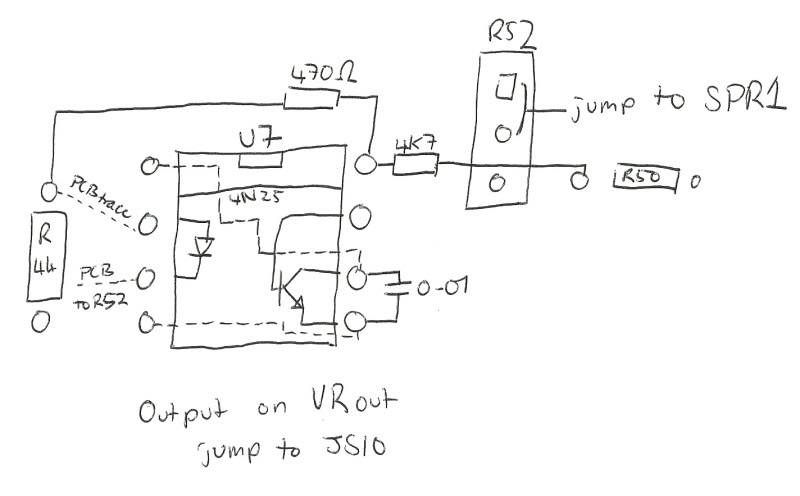 R52
470Ω
jump to SPR1
U7
4K7
PCB trace
4N25
R50
R
44
PCB
to R52
0-01
Output on VRout
jump to JS10